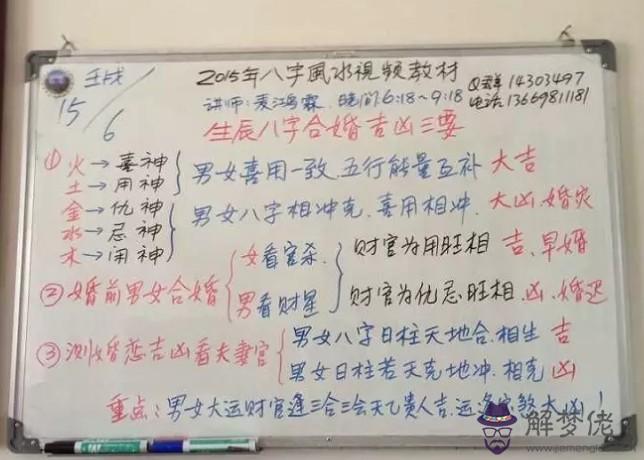 壬戌
15/6
2015年八字風水視频教材
讲师:麦鸿霖. 晚间:6:18~9:18
Q群14303497
电话:13669811181
生辰八字合婚吉凶三要
① 火→喜神
土→用神
男女喜用一致.五行能量互补 大吉
金→仇神
水→忌神
木→闲神
男女八字相冲克.喜用相冲. 大凶.婚灾
② 婚前男女合婚
女看官杀.
男看财星
财官为用旺相 吉.早婚
财官为仇忌旺相.凶.婚迟
③ 测婚恋吉凶看夫妻宫
男女八字日柱天地合.相生 吉
男女日柱若天克地冲.相克 凶
重点:男女大运财官逢三合三会天乙贵人吉.运逢 煞大凶!
解梦佬